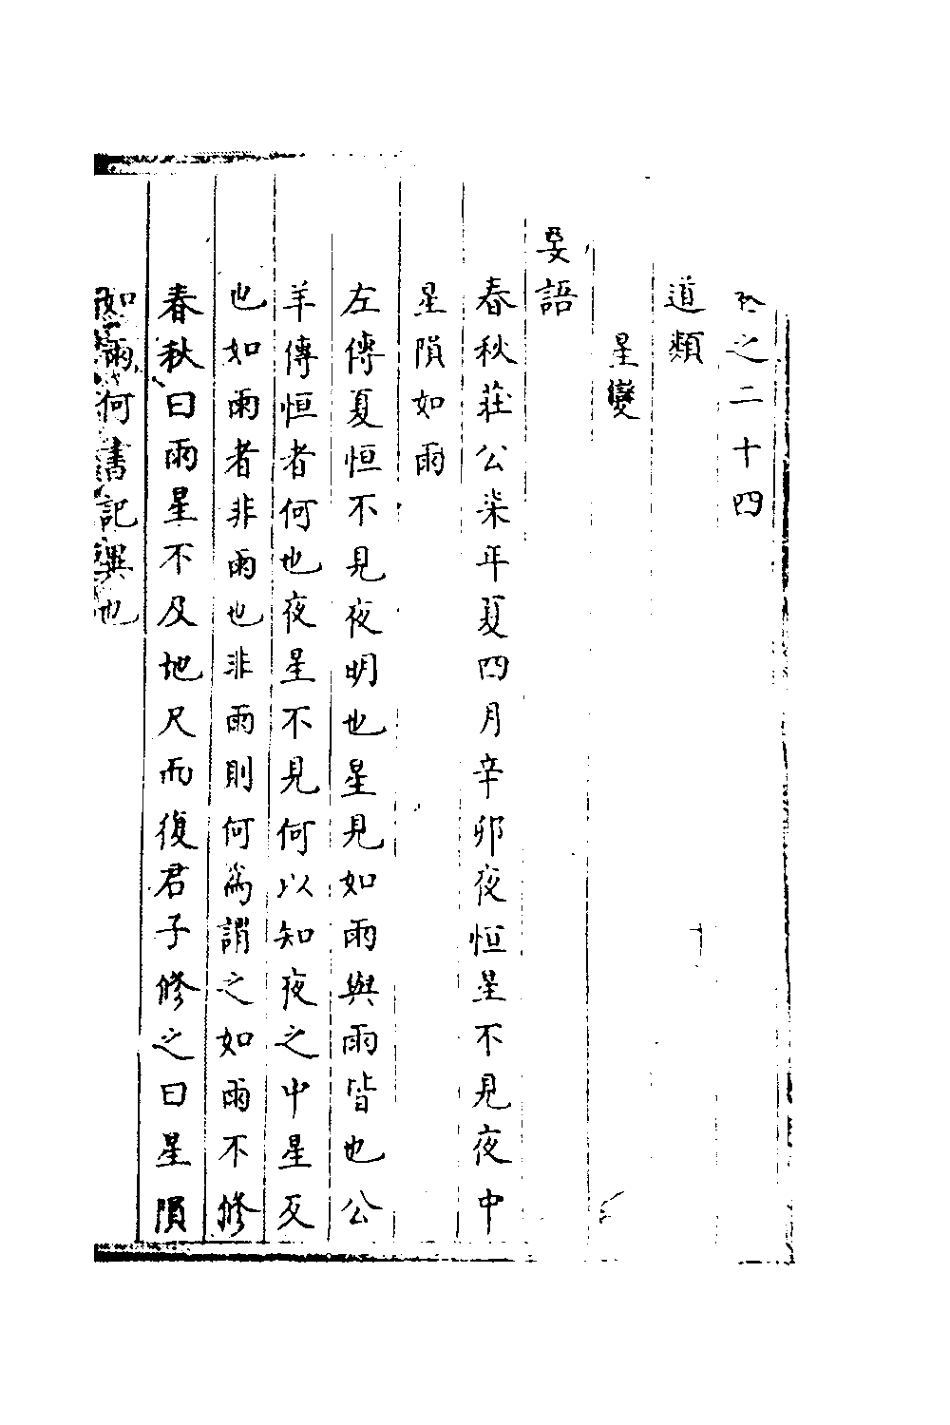 卷之二十四
道類
星變
晏語
春秋莊公柒年夏四月辛卯夜恒星不見夜中
星隕如雨
左傳夏恒不見夜明也星見如雨與雨皆也公
羊傳恒者何也夜星不見何以知夜之中星反
也如雨者非雨也非雨則何為謂之如雨不修
春秋曰雨星不及地尺而復君子修之曰星隕
如雨何書記異也